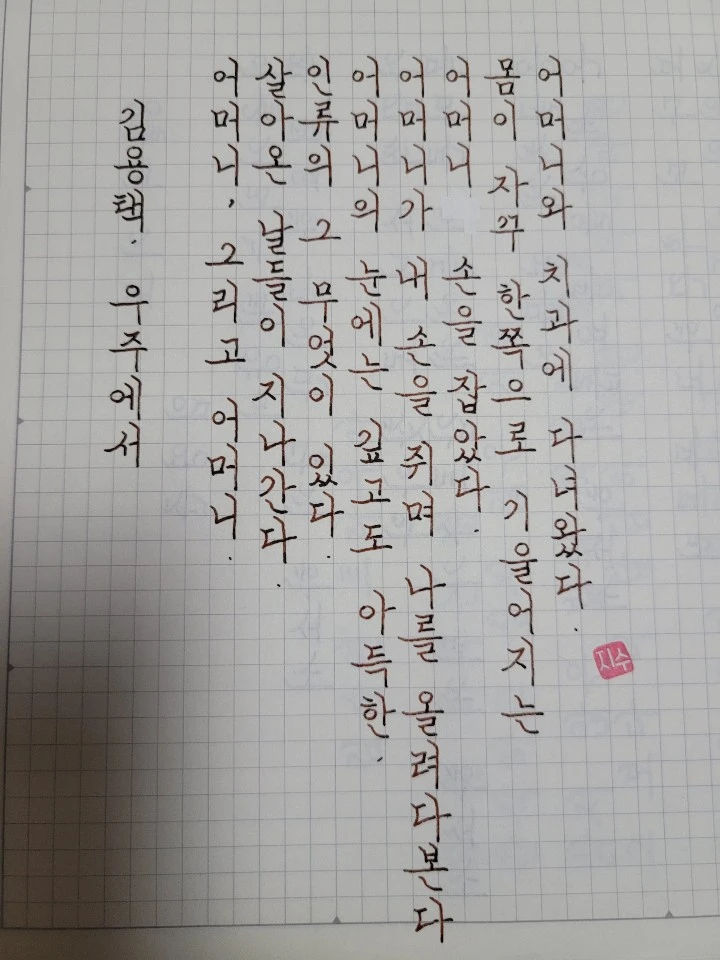 어머니와 치과에 다녀왔다.
몸이 자꾸 한쪽으로 기울어지는
어머니 손을 잡았다.
어머니가 내 손을 쥐며 나를 올려다본다
어머니의 눈에는 깊고도 아득한.
인류의 그 무엇이 있다.
살아온 날들이 지나간다.
어머니, 그리고 어머니.
김용택. 우주에서
지수